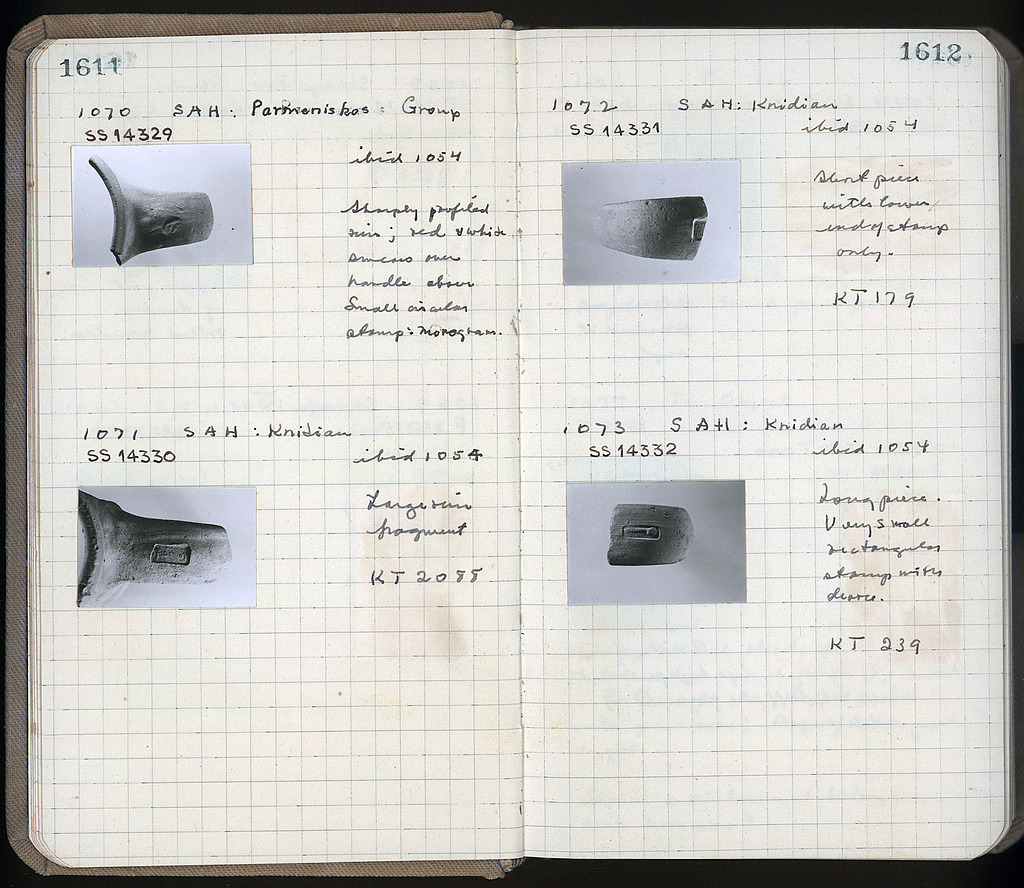 1611
1070 SAH: Parmeniskos: Group
SS 14329
ibid 1054
Sharply profiled
rim; red & white
smears over
handle above
Small circular
stamp: monogram.
1071 SAH: Knidian
SS 14330
ibid 1054
Large rim
fragment
KT 2088
1612
1072 SAH: Knidian
SS 14331
ibid 1054
Short piece
with lower
end of stamp
only.
KT 179
1073 SAH: Knidian
SS 14332
ibid 1054
Long piece.
Very small
rectangular
stamp with
KT 239